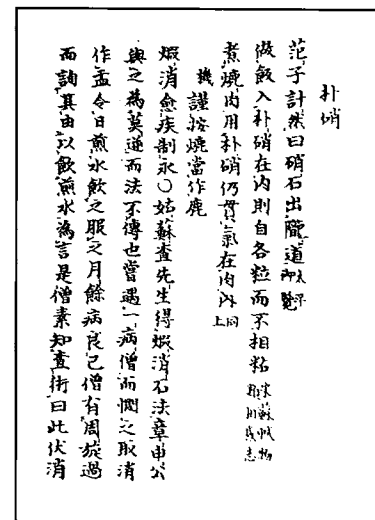 朴硝
范子計然曰硝石出隴道太平御覽
做飯入朴硝在內則自各粒而不相粘宋蘇軾物類相感志
煮燒肉用朴硝仍貫氣在肉內同上
機謹按燒當作鹿
煆消愈疾制永○姑蘇查先生得煆消石法章申公
與之為莫逆而法不傳也嘗遇一病僧而憫之取消
作盂令日煎水飲之服之月餘病良已僧有周旋過
而詢其由以飲煎水為言是僧素知查術曰此伏消